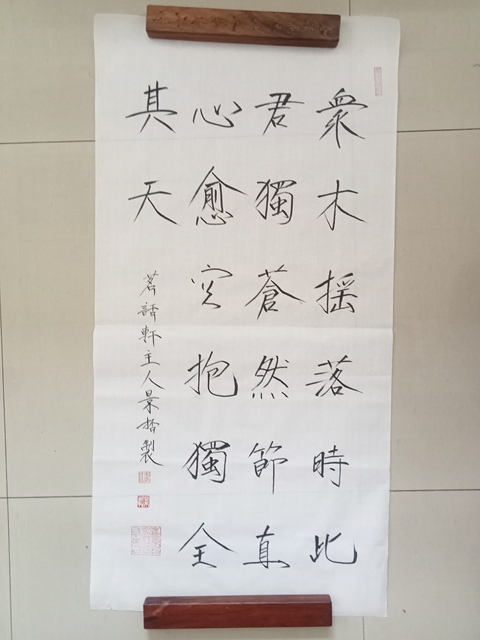 衆木摇落時此
君獨蒼然節直
心愈空抱獨全
其天
茗話軒主人景製